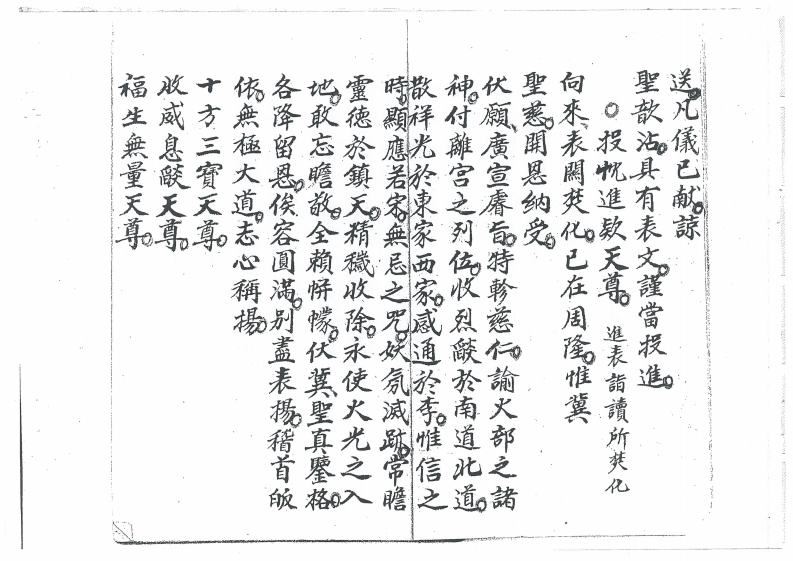 送。凡儀已献。諒
聖歆沾。具有表文。謹當投進。
○投忱進欵天尊。進表詣讀所焚化
向來、表關焚化。已在周隆。惟冀
聖慈。開恩納受。
伏願、廣宣睿旨。特軫慈仁。諭火部之諸
神。付離宮之列位。收烈燄於南道北道。
散祥光於東家西家。感通於李。惟信之
時。顯應若宋。無忌之咒。妖氛滅跡。常瞻
靈徳於鎮天。精穢收除。永使火光之入
地。敢忘瞻敬。全賴帡幪。伏冀、聖真鑒格。
各降留恩。俟容圓滿。別盡表揚。稽首皈
依。無極大道。志心稱揚。
十方三寶天尊。
收威息燄天尊。
福生無量天尊。